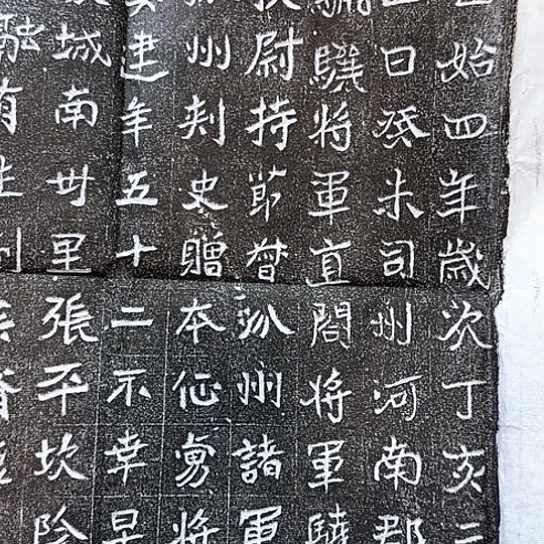 始四年歲次丁亥
日癸未司州河南郡
將軍直閤將軍驍
尉持節督汾州諸軍
州刺史贈本征虜將
建年五十二不幸早
城南卅里張平坎陰
融有